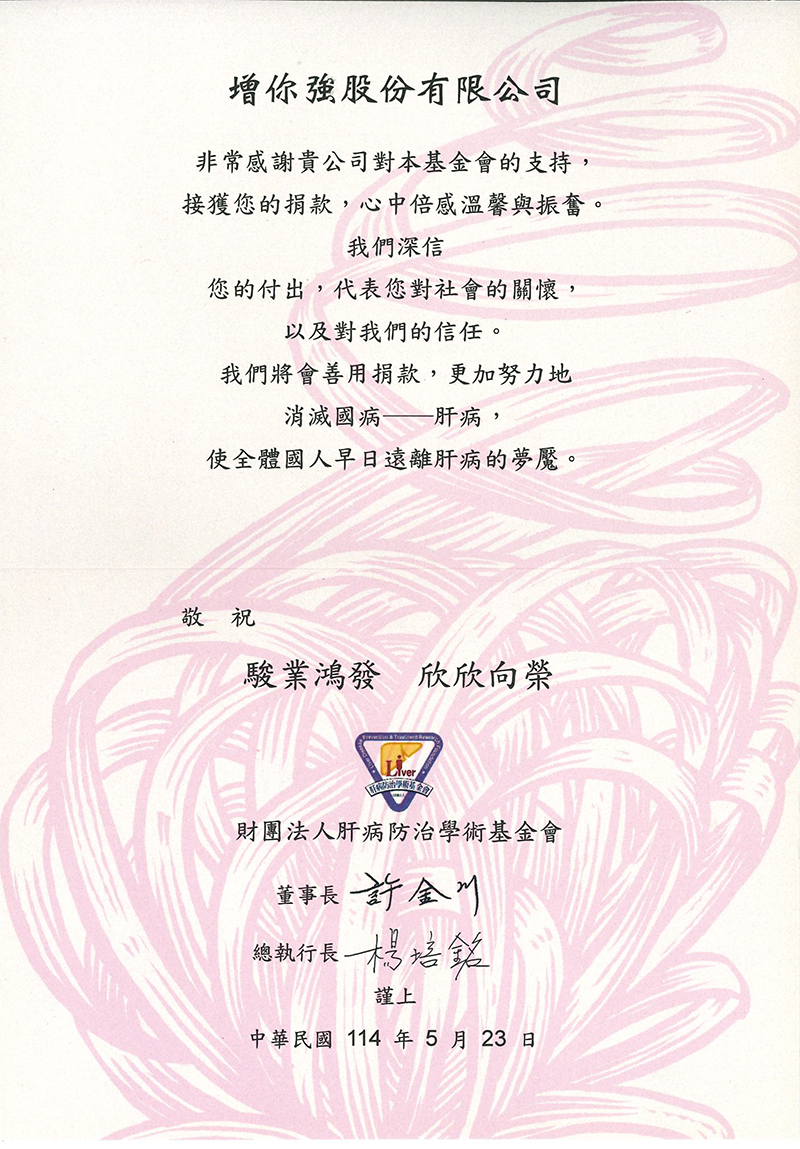 增你強股份有限公司
非常感謝貴公司對本基金會的支持，
接獲您的捐款，心中倍感溫馨與振奮。
我們深信
您的付出，代表您對社會的關懷，
以及對我們的信任。
我們將會善用捐款，更加努力地
消滅國病——肝病，
使全體國人早日遠離肝病的夢魘。
敬　祝
駿業鴻發　欣欣向榮
Prevention & Treatment Research
Liver
肝病防治學術基金會
財團法人肝病防治學術基金會
董事長 許金川
總執行長 楊培銘
謹上
中華民國 114 年 5 月 23 日